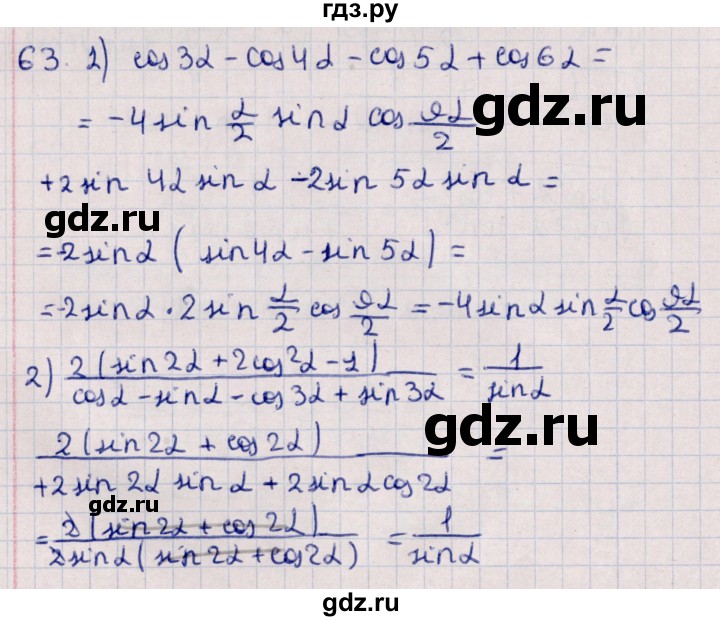 гдз.ру
63. 1) cos3α - cos4α - cos5α + cos6α =
= -4 sin α/2 sin α cos 9α/2
gdz.ru
+2 sin 4α sin α - 2 sin 5α sin α =
gdz.ru
= -2 sin α ( sin 4α - sin 5α ) =
= -2 sin α · 2 sin α/2 cos 9α/2 = -4 sin α sin α/2 cos 9α/2
2) 2(sin 2α + 2cos²α - 1) / cos α - sin α - cos 3α + sin 3α = 1 / sin α
gdz.ru
2(sin 2α + cos 2α) / +2 sin 2α sin α + 2 sin α cos 2α =
= 2(sin 2α + cos 2α) / 2 sin α (sin 2α + cos 2α) = 1 / sin α
gdz.ru
gdz.ru